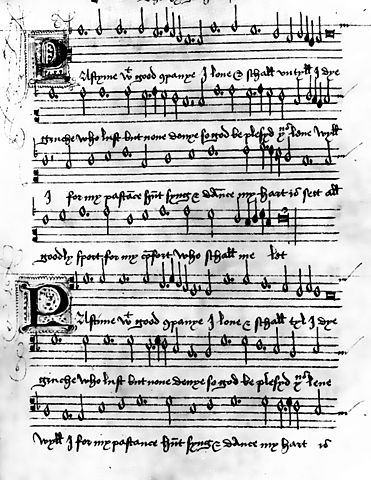 Pastyme wt good 9panye I loue & schall vntyll I dye
gruche who lust but none denye so god be plesyd yus loue wyll
I for my pastãce hũt syng & dãnce my hart is sett all
goodly sport for my cõfort who schall me let
Pastime wt good 9panye I loue & schall tyl I dye
gruche who lust but none denye so god be plesyd yus leue
wyll I for my pastance hũt syng & dance my hart is